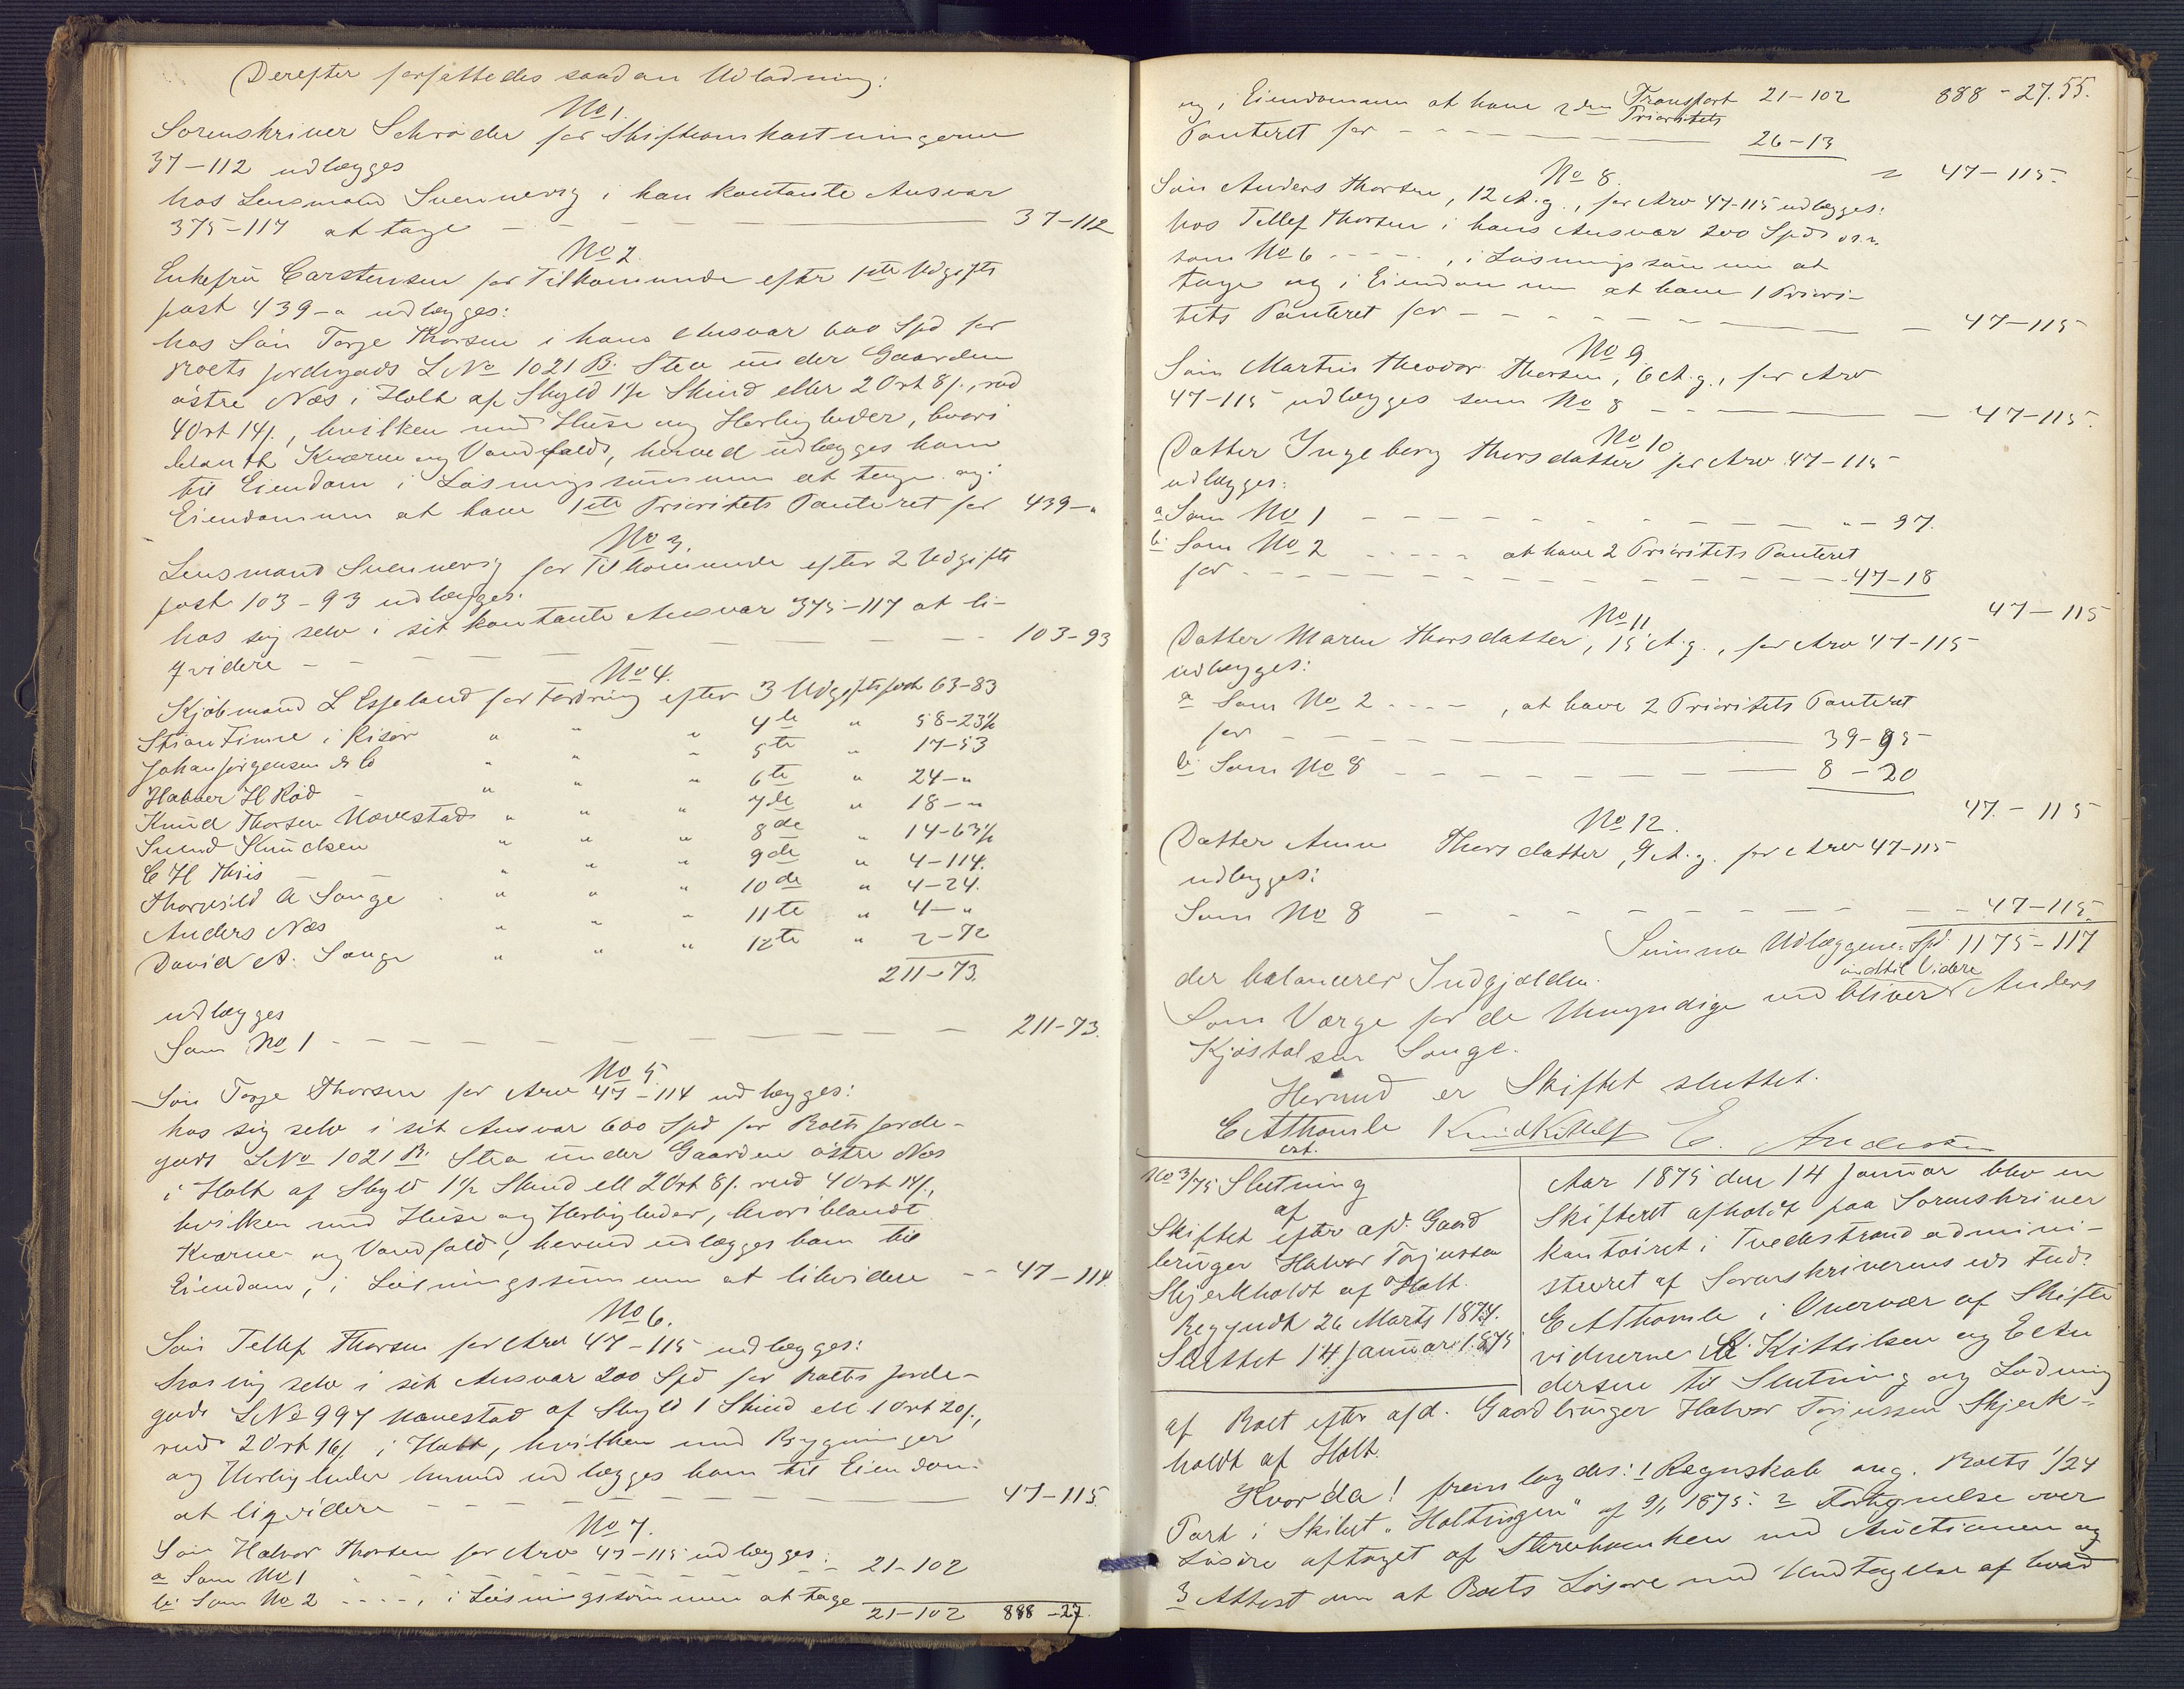 Derefter forfattedes saadan Udlodning:
No 1.
Sorenskriver Schrøder for Skifteomkostningerne
37-112 udlægges
hos Lensmand Svennevig i han kontante Ansvar
375-117 at tage - - - 37-112
No 2
Enkefru Carstensen for Tilkommende efter 1ste Udgifts
post 439-" udlægges:
hos Søn Torje Thorsen i hans Ansvar 600 Spd for
Boets jordegods LNo 1021 B. Stea under Gaarden
østre Næs i Holt af Skyld 1½ Skind eller 2 Ort 8 s., rvd
4 Ort 14 s., hvilken med Huse og Herligheder, hvori
blandt Kværne og Vandfald, herved udlægges ham
til Eiendom i Løsningssummen at tage og i
Eiendommen at have 1ste Prioritets Panteret for 439-"
No 3.
Lensmand Svennevig for Tilkommende efter 2 Udgifts
post 103-93 udlægges:
hos sig selv i sit kontante Ansvar 375-117 at li-
qvidere - - - 103-93
No 4.
Kjøbmand L Espeland for Fordring efter 3 Udgiftspost 63-83
Stian Finne i Risør " " " 4de " 58-23½
Johan Jørgensen & Co " " " 5te " 17-53
Halvor H Rød " " " 6te " 24-"
Knud Thorsen Movestad " " " 7de " 18-"
Svend Knudsen " " " 8de " 14-63½
C H Thiis " " " 9de " 4-114.
Thorvild A Songe " " " 10de " 4-24.
Anders Næs " " " 11te " 4-"
David A. Songe " " " 12te " 2-72
211-73.
udlægges
Som No 1 - - - 211-73.
No 5.
Søn Torje Thorsen for Arv 47-114 udlægges:
hos sig selv i sit Ansvar 600 Spd for Boets jorde-
gods LNo 1021 B. Stea under Gaarden østre Næs
i Holt af Skyld 1½ Skind ell 2 Ort 8 s. rvd 4 Ort 14 s.,
hvilken med Huse og Herligheder, hvoriblandt
Kværne- og Vandfald, herved udlægges ham til
Eiendom, i Løsningssummen at likvidere - - 47-114
No 6.
Søn Tellef Thorsen for Arv 47-115 udlægges:
hos sig selv i sit Ansvar 200 Spd for Boets jorde-
gods LNo 997 Movestad af Skyld 1 Skind ell 1 Ort 20 s.,
rvd 2 Ort 16 s i Holt, hvilken med Bygninger
og Herligheder herved udlægges ham til Eiendom
at liqvidere - - - 47-115.
No 7.
Søn Halvor Thorsen for Arv 47-115 udlægges:
a Som No 1 - - - 21-102
b. Som No 2 - - - -, i Løsningssummen at tage
21-102 888-27.
og i Eiendommen at have 2den Transport 21-102 888-27.55.
Prioritets
Panteret for - - - 26-13
= 47-115.
No 8.
Søn Anders Thorsen, 12 A. g., for Arv 47-115 udlægges:
hos Tellef Thorsen i hans Ansvar 200 Spd o s v
som No 6 - - - -, i Løsningssummen at
tage og i Eiendommen at have 1 Priori-
tets Panteret for - - - 47-115
No 9
Søn Martin Theodor Thorsen, 6 A. g., for Arv
47-115 udlægges som No 8 - - - 47-115.
No 10
Datter Ingeborg Thorsdatter for Arv 47-115
udlægges:
a Som No 1 - - - "-97.
b. Som No 2 - - - - at have 2 Prioritets Panteret
for - - - 47-18
47-115
No 11
Datter Maren Thorsdatter, 15 A. g., for Arv 47-115
udlægges:
a Som No 2 - - - -, at have 2 Prioritets Panteret
for - - - 39-95
b. Som No 8 - - - 8-20
47-115
No 12.
Datter Anne Thorsdatter, 9 A. g. for Arv 47-115
udlægges:
Som No 8 - - - 47-115.
Summa Udlæggene Spd. 1175-117
der balancerer Indgjælden.
indtil Videre
Som Værge for de Umyndige vedbliver Anders
Kjøstolsen Songe.
Hermed er Skiftet sluttet.
E A Thomle Knud Kittelsen E. Andersen
cst.
No 3/75 Slutning
af
Skiftet efter afd. Gaard
bruger Halvor Torjussen
Skjerkholdt af Holt.
Begyndt 26 Marts 1874.
Sluttet 14 Januar 1875
Aar 1875 den 14 Januar blev en
Skifteret afholdt paa Sorenskriver
kontoiret i Tvedestrand admini-
streret af Sorenskriverens eds Fuldm.
E A Thomle i Overvær af Skifte
vidnerne K. Kittilsen og E An
dersen til Slutning og Lodning
af Boet efter afd. Gaardbruger Halvor Torjussen Skjerk-
holdt af Holt.
Hvorda! fremlagdes: 1 Regnskab ang. Boets 1/24
Part i Skibet "Holtingen" af 9/1 1875. 2 Fortegnelse over
Løsøre aftaget af Stervboenken ved Auctionen og
3 Attest om at Boets Løsøre med Undtagelse af hvad